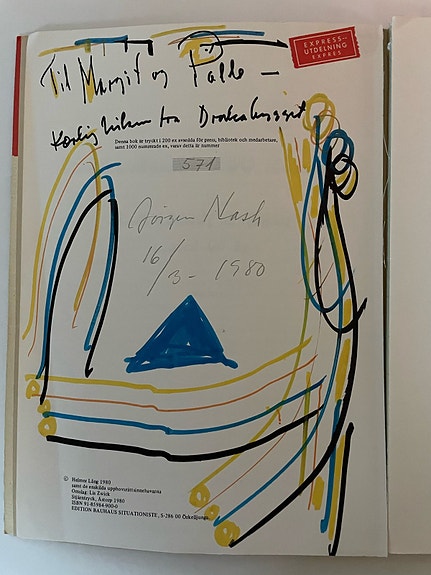 EXPRESS-
UTDELNING
EXPRES
Til Margit og Palle —
Kærlig hilsen fra Drakabygget
Denna bok är tryckt i 200 ex avsedda för press, bibliotek och medarbetare,
samt 1000 numrerade ex, varav detta är nummer
571
Jörgen Nash
16/3 - 1980
© Helmer Lång 1980
samt de enskilda upphovsrättsinnehavarna
Omslag: Lis Zwick
Stjärntryck, Åstorp 1980
ISBN 91-85984-000-0
EDITION BAUHAUS SITUATIONISTE, S-286 00 Örkelljunga